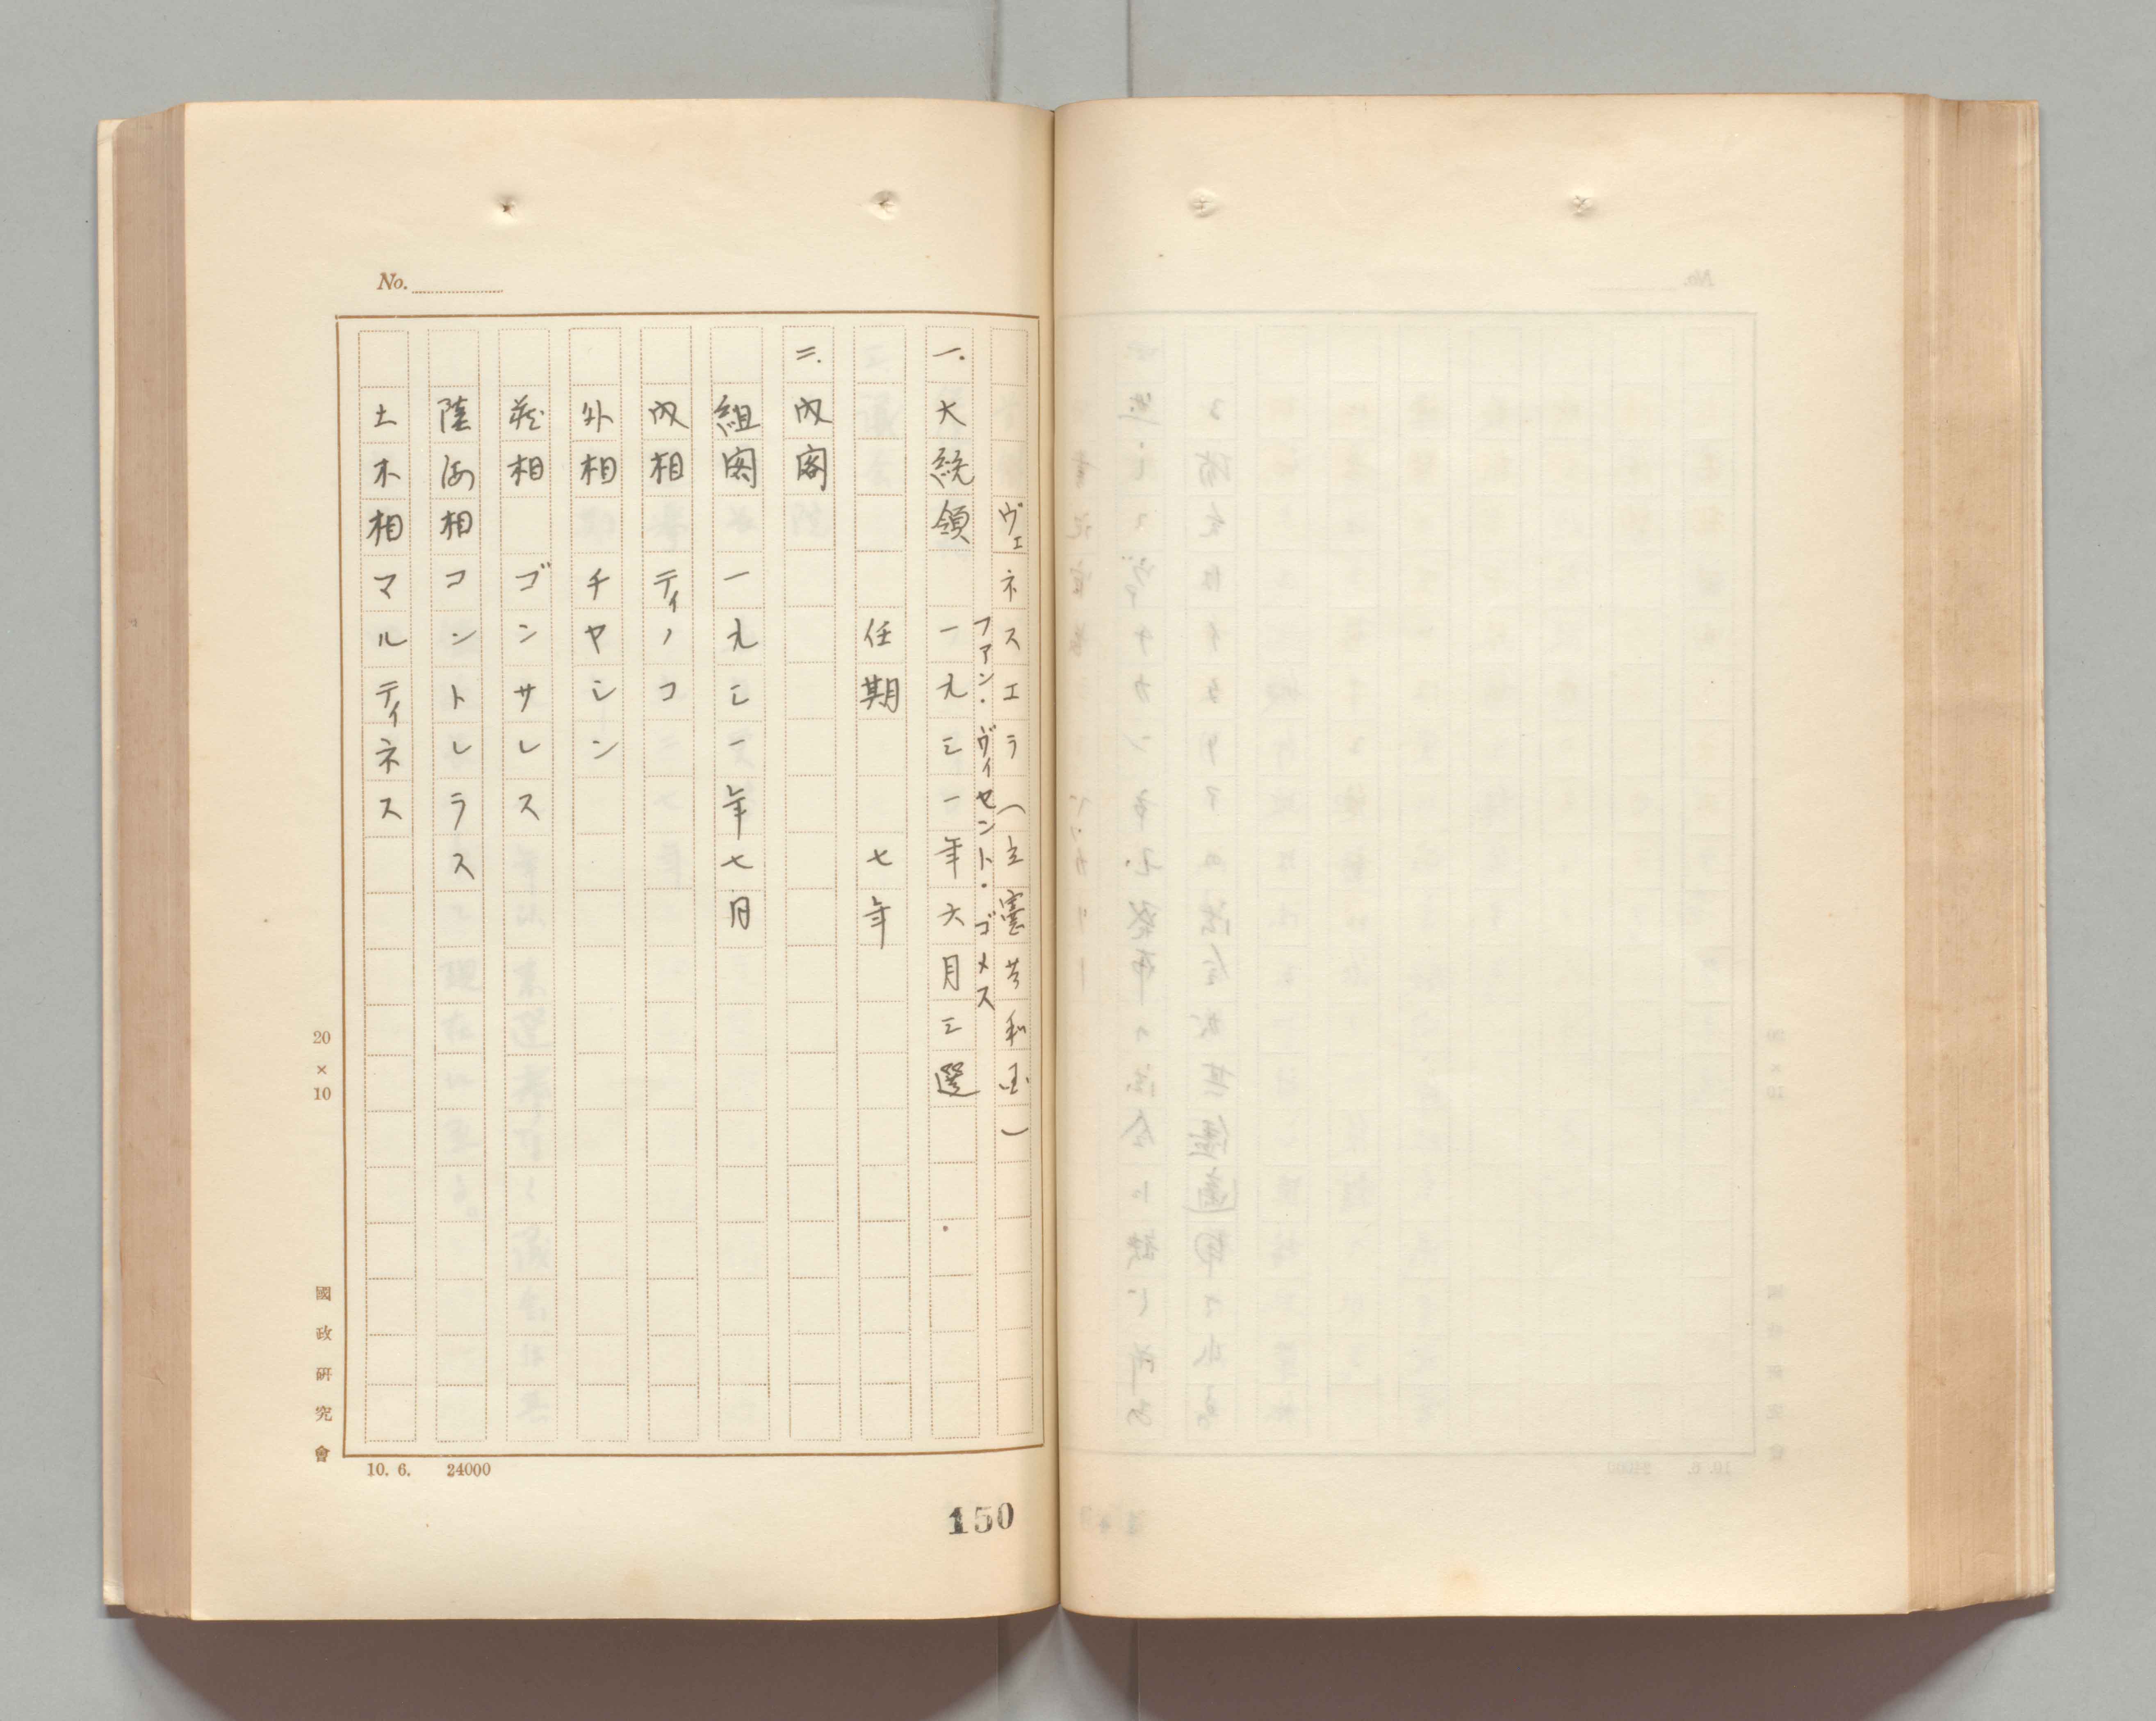 No.
ヴェネスエラ(立憲共和国)
ファン・ヴィセント・ゴメス
一.大統領 一九三一年六月三選
任期 七年
二.内閣
組閣 一九三一年七月
内相 ティノコ
外相 チヤシン
蔵相 ゴンサレス
陸海相コントレラス
土木相マルティネス
20×10
國政研究會
10. 6. 24000
150